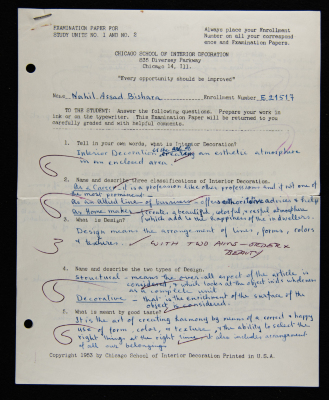 EXAMINATION PAPER FOR
STUDY UNITS NO. 1 AND NO. 2
Always place your Enrollment
Number on all your correspond
ence and Examination Papers.
CHICAGO SCHOOL OF INTERIOR DECORATION
835 Diversey Parkway
Chicago 14, Ill.
"Every opportunity should be improved"
Name Nahil Assad Bishara Enrollment Number E.21517
TO THE STUDENT: Answer the following questions. Prepare your work in
ink or on the typewriter. This Examination Paper will be returned to you
carefully graded and with helpful comments.
1. Tell in your own words, what is Interior Decoration?
is the art of
Interior Decoration creating an esthetic atmosphere
in an enclosed area
2. Name and describe three classifications of Interior Decoration.
As a Career, it is a profession like other professions and if not one of
the most prominent
As an allied line of business - offers advice & help
As Home maker, creates a beautiful, colorful, & restful atmosphere
(which adds to the happiness of the indwellers.
3. What is Design?
Design means the arrangement of lines, forms, colors
& textures. WITH TWO AIMS - ORDER &
BEAUTY
4. Name and describe the two types of Design.
Structural - means the over all aspect of the article is
considered, & which looks at the object
as a complete unit
Decorative - that is the enrichment of the surface of the
object is considered.
5. What is meant by good taste?
It is the art of creating harmony by means of a correct & happy
use of form, color, & texture, & the ability to select the
right things at the right time it also includes arrangement
of all our belongings.
Copyright 1953 by Chicago School of Interior Decoration Printed in U.S.A.